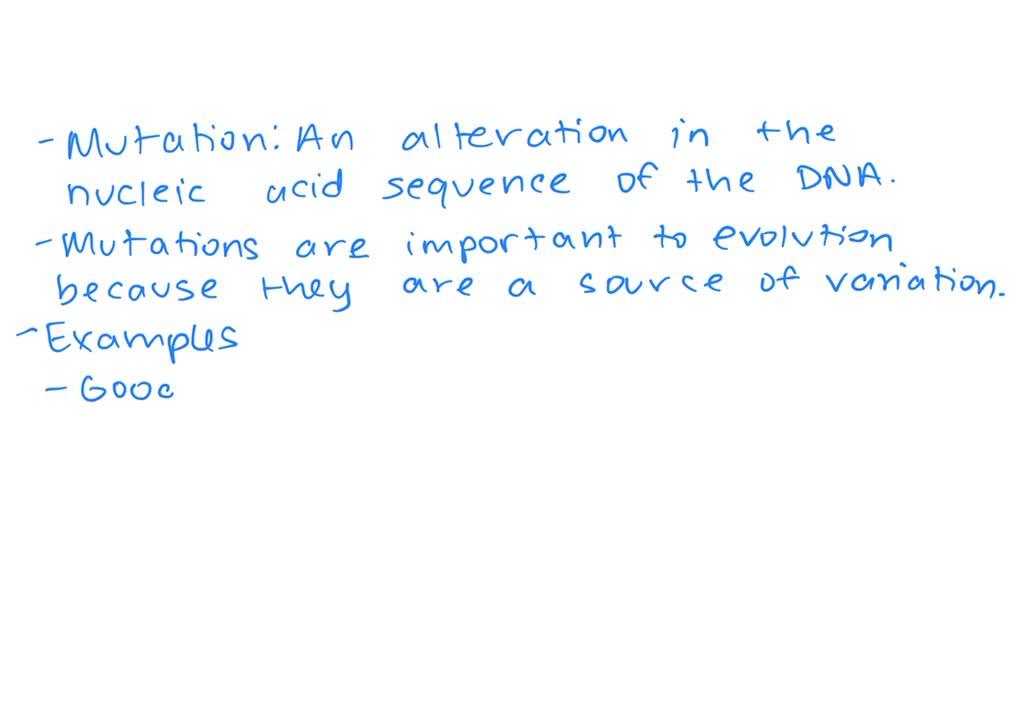 - Mutation: An alteration in the
nucleic acid sequence of the DNA.
- Mutations are important to evolution
because they are a source of variation.
- Examples
- Gooc